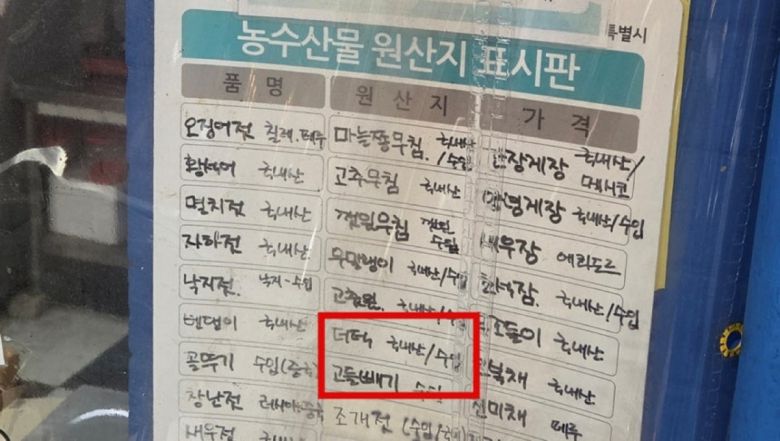 특별시
농수산물 원산지 표시판
품명 원산지 가격
오징어젓 칠레.페루
마늘쫑무침. 국내산/수입
장게장 국내산/멕시코
황석어 국내산
고추무침 국내산
양념게장 국내산/수입
멸치젓 국내산
깻잎무침 깻잎 수입
새우장 에콰도르
자하젓 국내산
무말랭이 국내산/수입
낙지젓. 낙지-수입
국내산/수입
밴댕이 국내산
더덕 국내산/수입
국내산
꼴뚜기 수입(중국
고들빼기 수입
북채 국내산
창난젓 러시아
조개젓 (수입/
진미채 페루
새우젓 국내산